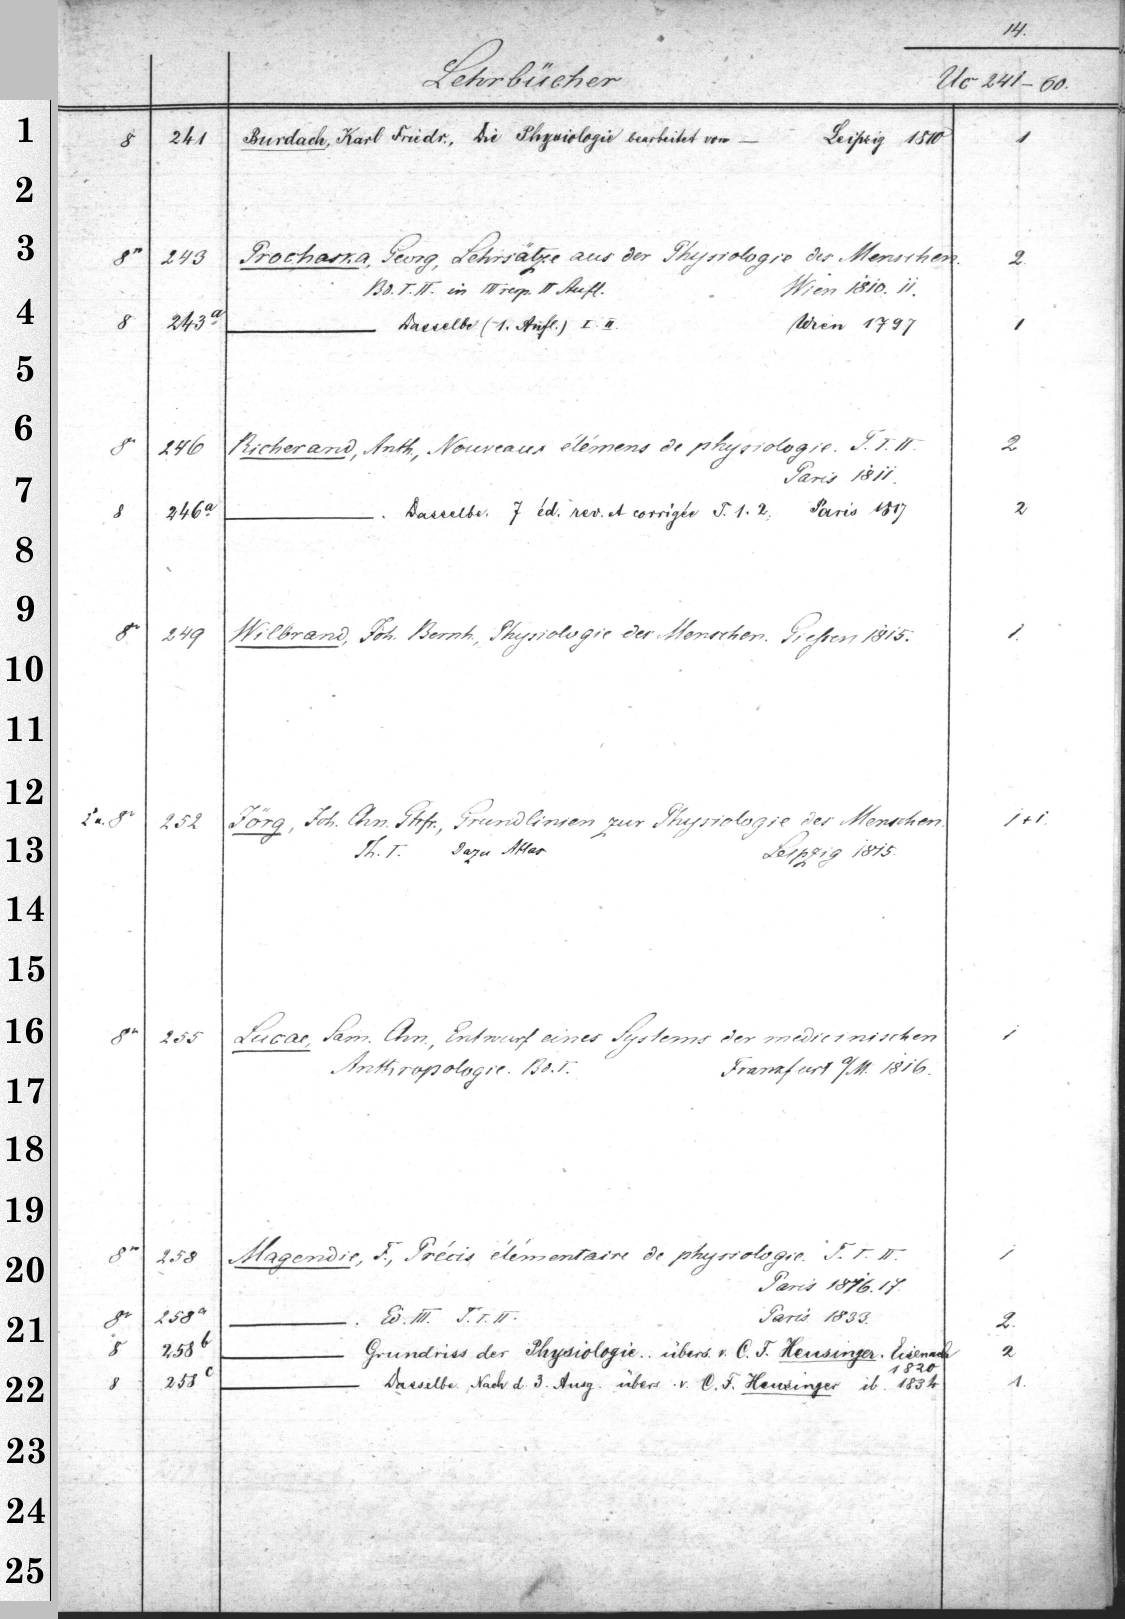 14.
Lehrbücher Uc 241-60.
1 8 241 Burdach, Karl Friedr., Die Physiologie bearbeitet von — Leipzig 1810 1
2
3 8º 243 Prochaska, Georg, Lehrsätze aus der Physiologie des Menschen. 2
Bd. I. II. in III resp. II Aufl. Wien 1810. 11.
4 8 243a ——— Dasselbe (1. Aufl.) I. II. Wien 1797 1
5
6 8º 246 Richerand, Anth., Nouveaux élémens de physiologie. T. I. II. 2
7 Paris 1811.
8 246a ——— . Dasselbe. 7 éd. rev. et corrigée T. 1. 2, Paris 1817 2
8
9 8º 249 Wilbrand, Joh. Bernh., Physiologie des Menschen. Giessen 1815. 1.
10
11
12 8º 252 Jörg, Joh. Chn. Gfr., Grundlinien zur Physiologie des Menschen. 1+1.
13 Th. I. Dazu Atlas Leipzig 1815.
14
15
16 8º 255 Lucae, Sam. Chn., Entwurf eines Systems der medicinischen 1
17 Anthropologie. Bd. I. Frankfurt a/M. 1816.
18
19
20 8º 258 Magendie, F., Précis élémentaire de physiologie. T. I. II. 1
Paris 1816. 17.
21 8º 258a ——— . Ed. III. T. I. II. Paris 1833. 2.
8 258b ——— Grundriss der Physiologie.. übers. v. C. F. Heusinger. Eisenach 2
1820
22 8 258c ——— Dasselbe. Nach d. 3. Ausg. übers. v. C. F. Heusinger ib. 1834 1.
23
24
25